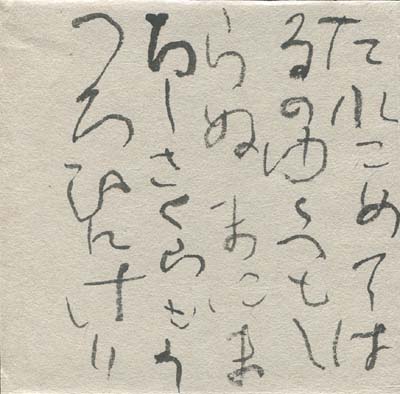 たれこめては
るのゆくへもし
らぬまにま
ちしさくらもう
つろひにけり